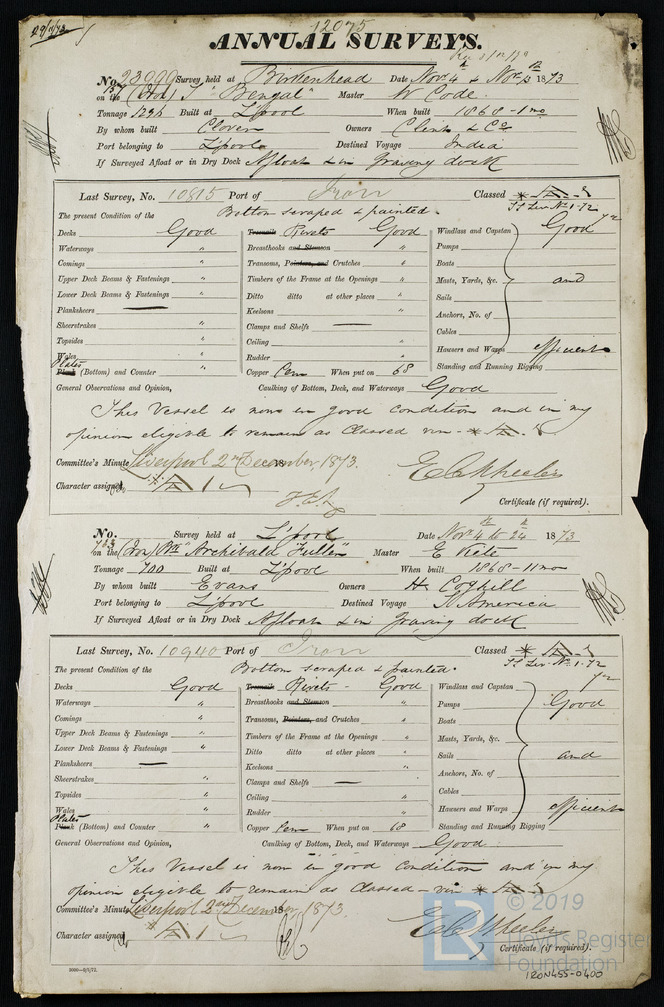 29/11/73
12075
ANNUAL SURVEYS.
No. 23999 Survey held at Birkenhead Date Nov. 4 & Nov. 1873
on the (Iron) "Bengal" Master W Code.
Tonnage Built at L'pool When built 1868 - 1 mo
By whom built Clover Owners Clint & Co.
Port belonging to L'pool Destined Voyage India
If Surveyed Afloat or in Dry Dock Afloat & in graving dock
Last Survey, No. 10815 Port of Iron Classed
SS Liv. No. 1-72
The present Condition of the Bottom scraped & painted.
Decks Good Treenails Rivets Good Windlass and Capstan Good
Waterways " Breasthooks and Stemson " Pumps
Comings " Transoms, Pointers, and Crutches " Boats
Upper Deck Beams & Fastenings " Timbers of the Frame at the Openings " Masts, Yards, &c. and
Lower Deck Beams & Fastenings " Ditto ditto at other places " Sails
Planksheers — Keelsons " Anchors, No. of
Sheerstrakes " Clamps and Shelfs — Cables
Topsides " Ceiling " Hawsers and Warps efficient
Wales " Rudder " Standing and Running Rigging
Plates
Plank (Bottom) and Counter " Copper Cem When put on 68
General Observations and Opinion, Caulking of Bottom, Deck, and Waterways Good
This Vessel is now in good condition and in my
opinion eligible to remain as Classed viz -
Committee's Minute Liverpool 2nd December, 1873.
Character assigned
E C Wheeler
Certificate (if required).
No. Survey held at L'pool Date Nov. 4 to 24 1873
on the (Iron) "Archibald Fuller" Master E Kite
Tonnage 700 Built at L'pool When built 1868 - 11 mo
By whom built Evans Owners H. Coghill
Port belonging to L'pool Destined Voyage S America
If Surveyed Afloat or in Dry Dock Afloat & in graving dock
Last Survey, No. 10940 Port of Iron Classed
SS Liv. No. 1-72
The present Condition of the Bottom scraped & painted.
Decks Good Treenails Rivets - Good Windlass and Capstan
Waterways " Breasthooks and Stemson " Pumps Good
Comings " Transoms, Pointers, and Crutches " Boats
Upper Deck Beams & Fastenings " Timbers of the Frame at the Openings " Masts, Yards, &c.
Lower Deck Beams & Fastenings " Ditto ditto at other places " Sails and
Planksheers — Keelsons " Anchors, No. of
Sheerstrakes " Clamps and Shelfs — Cables
Topsides " Ceiling " Hawsers and Warps efficient
Wales " Rudder " Standing and Running Rigging
Plates
Plank (Bottom) and Counter " Copper Cem When put on 68
General Observations and Opinion, Caulking of Bottom, Deck, and Waterways Good
This Vessel is now in good condition and in my
opinion eligible to remain as Classed - viz
Committee's Minute Liverpool 2nd December 1873.
Character assigned
E C Wheeler
Certificate (if required).
© 2019
LR Lloyd's Register
Foundation
IRON455-0400